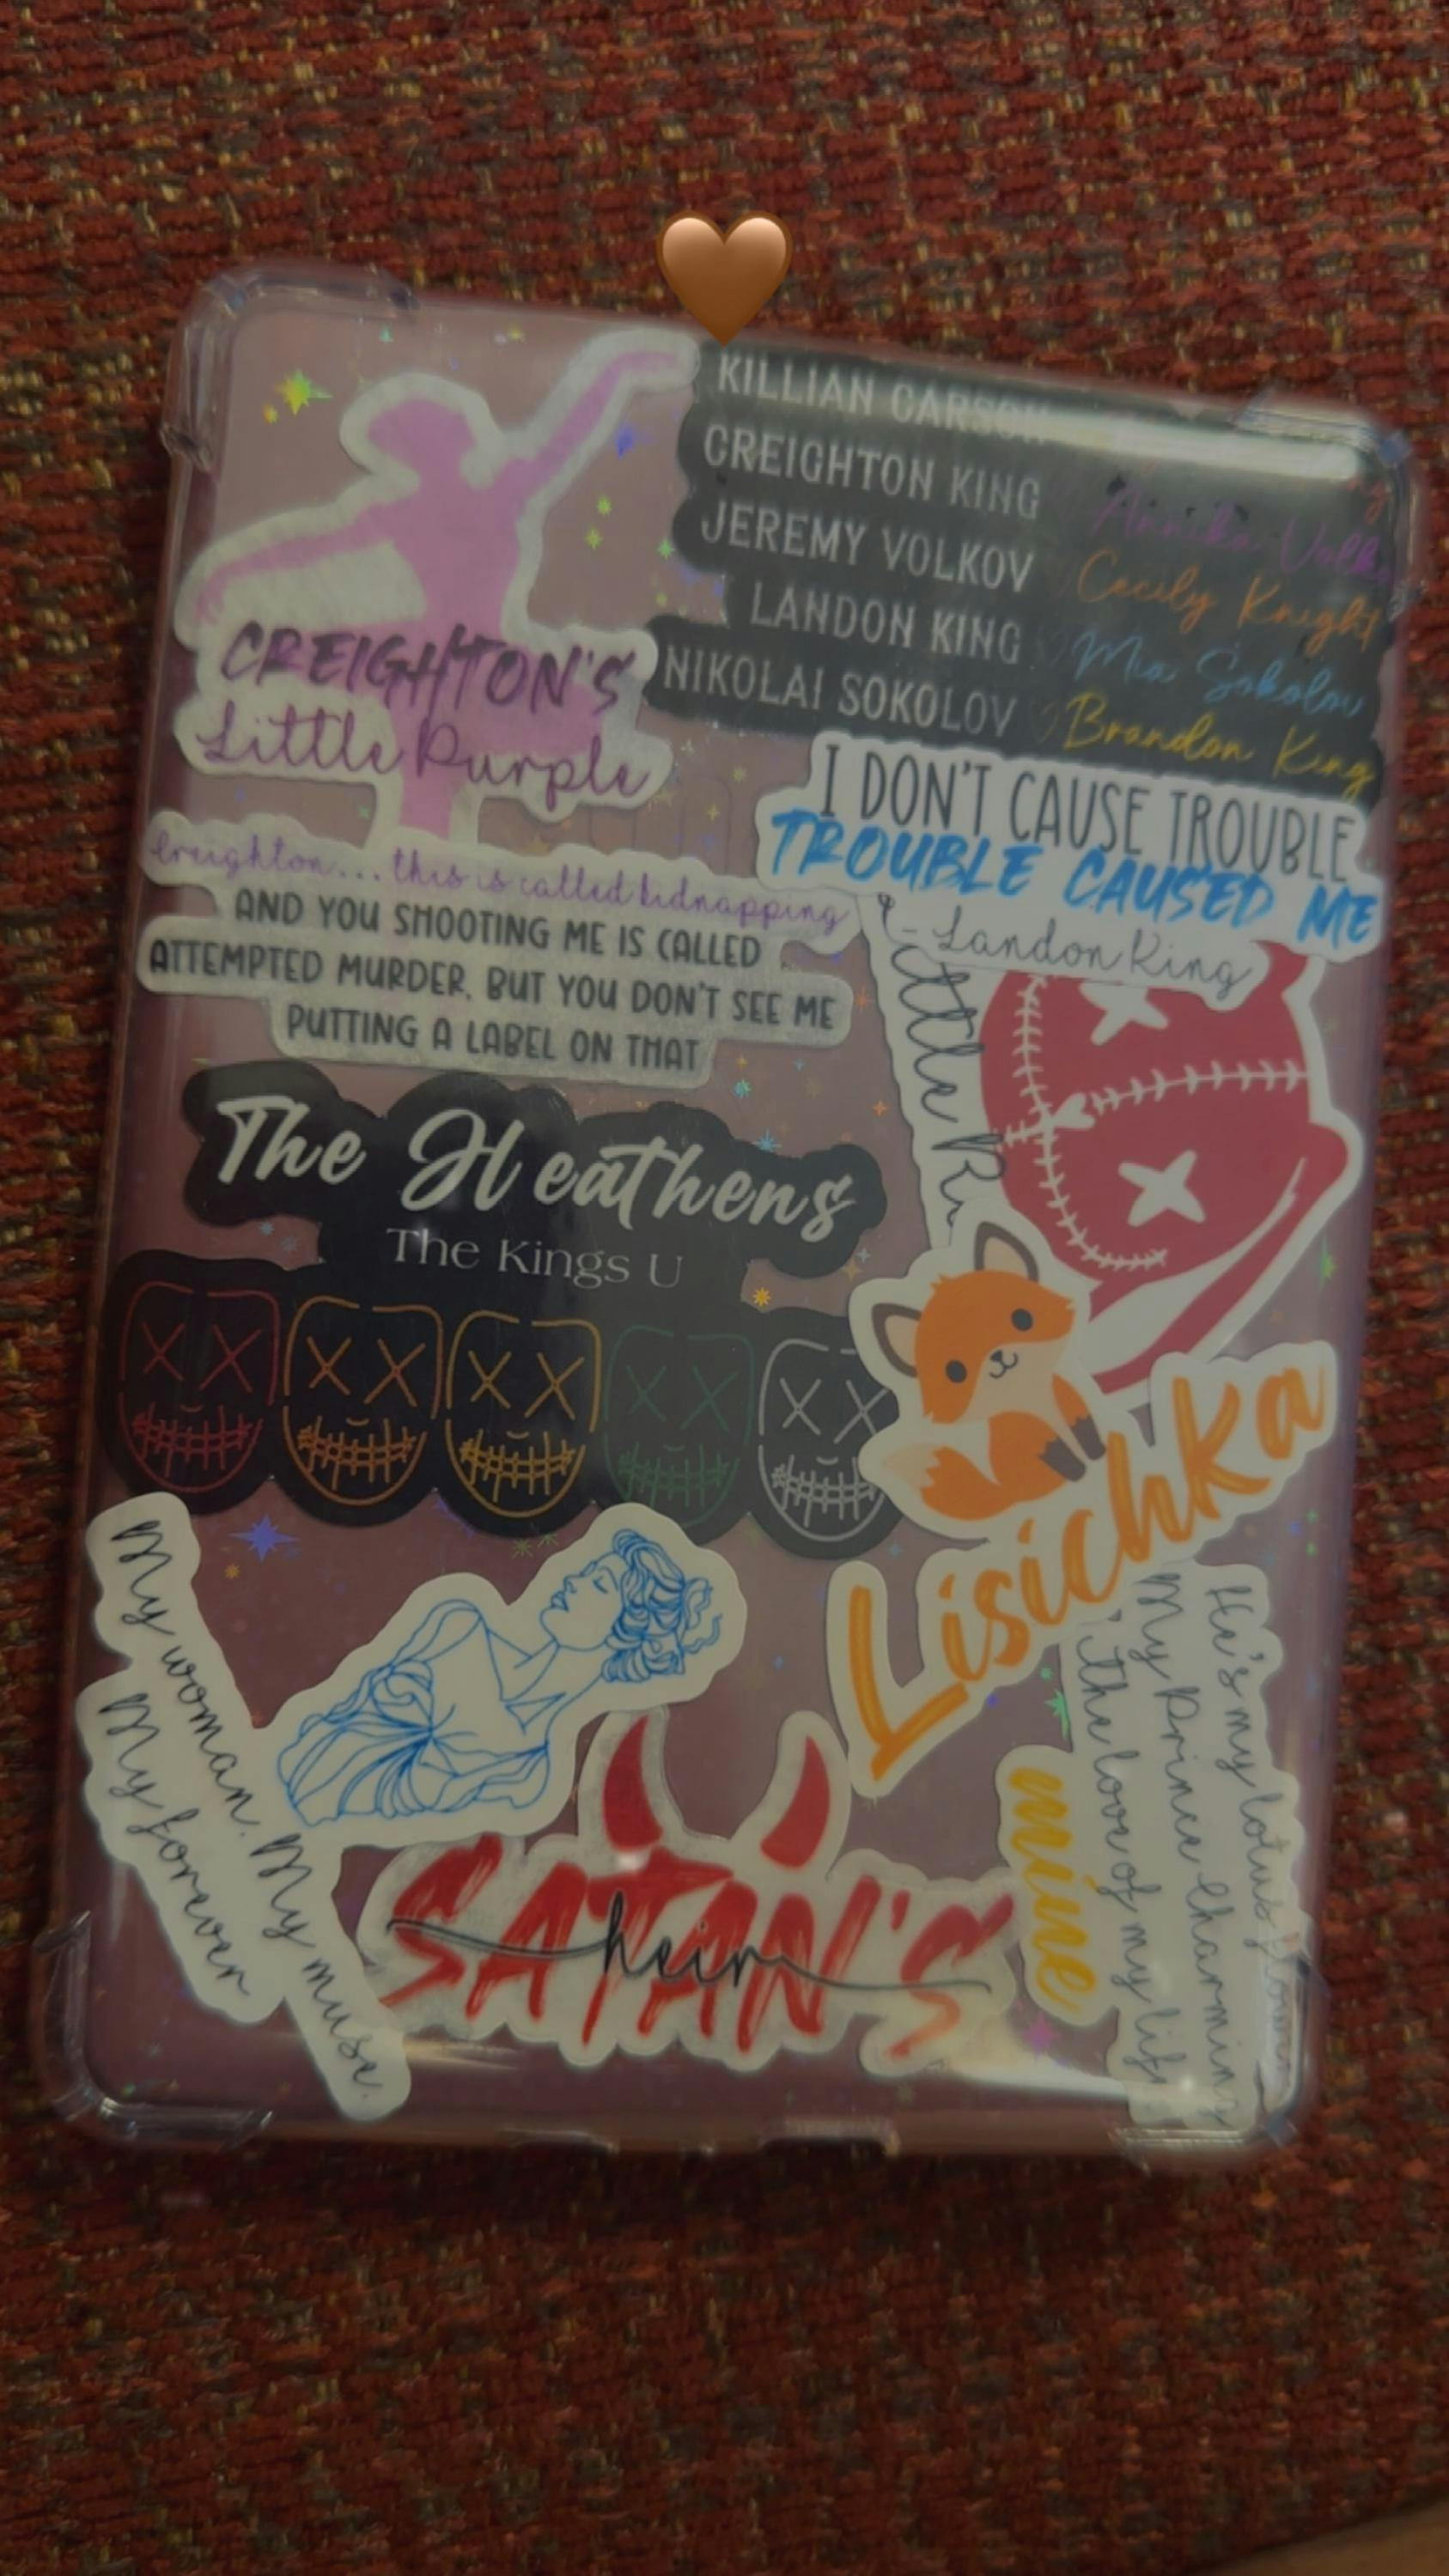 KILLIAN CARSON
CREIGHTON KING
Annika
JEREMY VOLKOV
Cecily Knight
LANDON KING
Mia Sokolov
NIKOLAI SOKOLOV
Brandon King
CREIGHTON'S
Little Purple
I DON'T CAUSE TROUBLE
TROUBLE CAUSED ME
- Landon King
Creighton... this is called kidnapping
AND YOU SHOOTING ME IS CALLED
ATTEMPTED MURDER, BUT YOU DON'T SEE ME
PUTTING A LABEL ON THAT
Little
The Heathens
The Kings U
Lisichka
My woman. My muse.
My forever
SATAN'S
heir
mine
He's my lotus flower
My Prince Charming
the love of my life